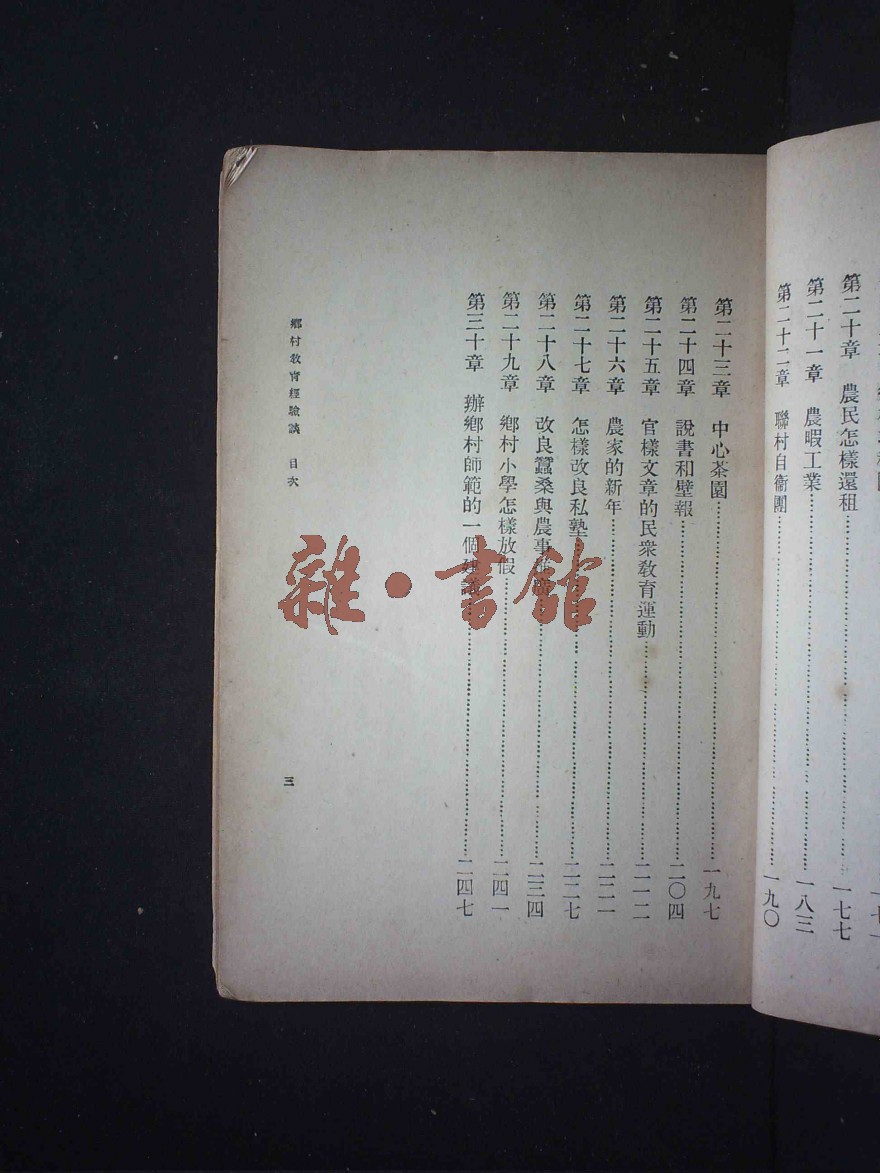 第二十章 農民怎樣還租 一七七
第二十一章 農暇工業 一八三
第二十二章 聯村自衞團 一九〇
第二十三章 中心茶園 一九七
第二十四章 說書和壁報 二〇四
第二十五章 官樣文章的民衆敎育運動 二一二
第二十六章 農家的新年 二二一
第二十七章 怎樣改良私塾 二二七
第二十八章 改良蠶桑與農事推廣 二三四
第二十九章 鄉村小學怎樣放假 二四一
第三十章 辦鄉村師範的一個建議 二四七
鄉村敎育經驗談 目次
三
雜·書館